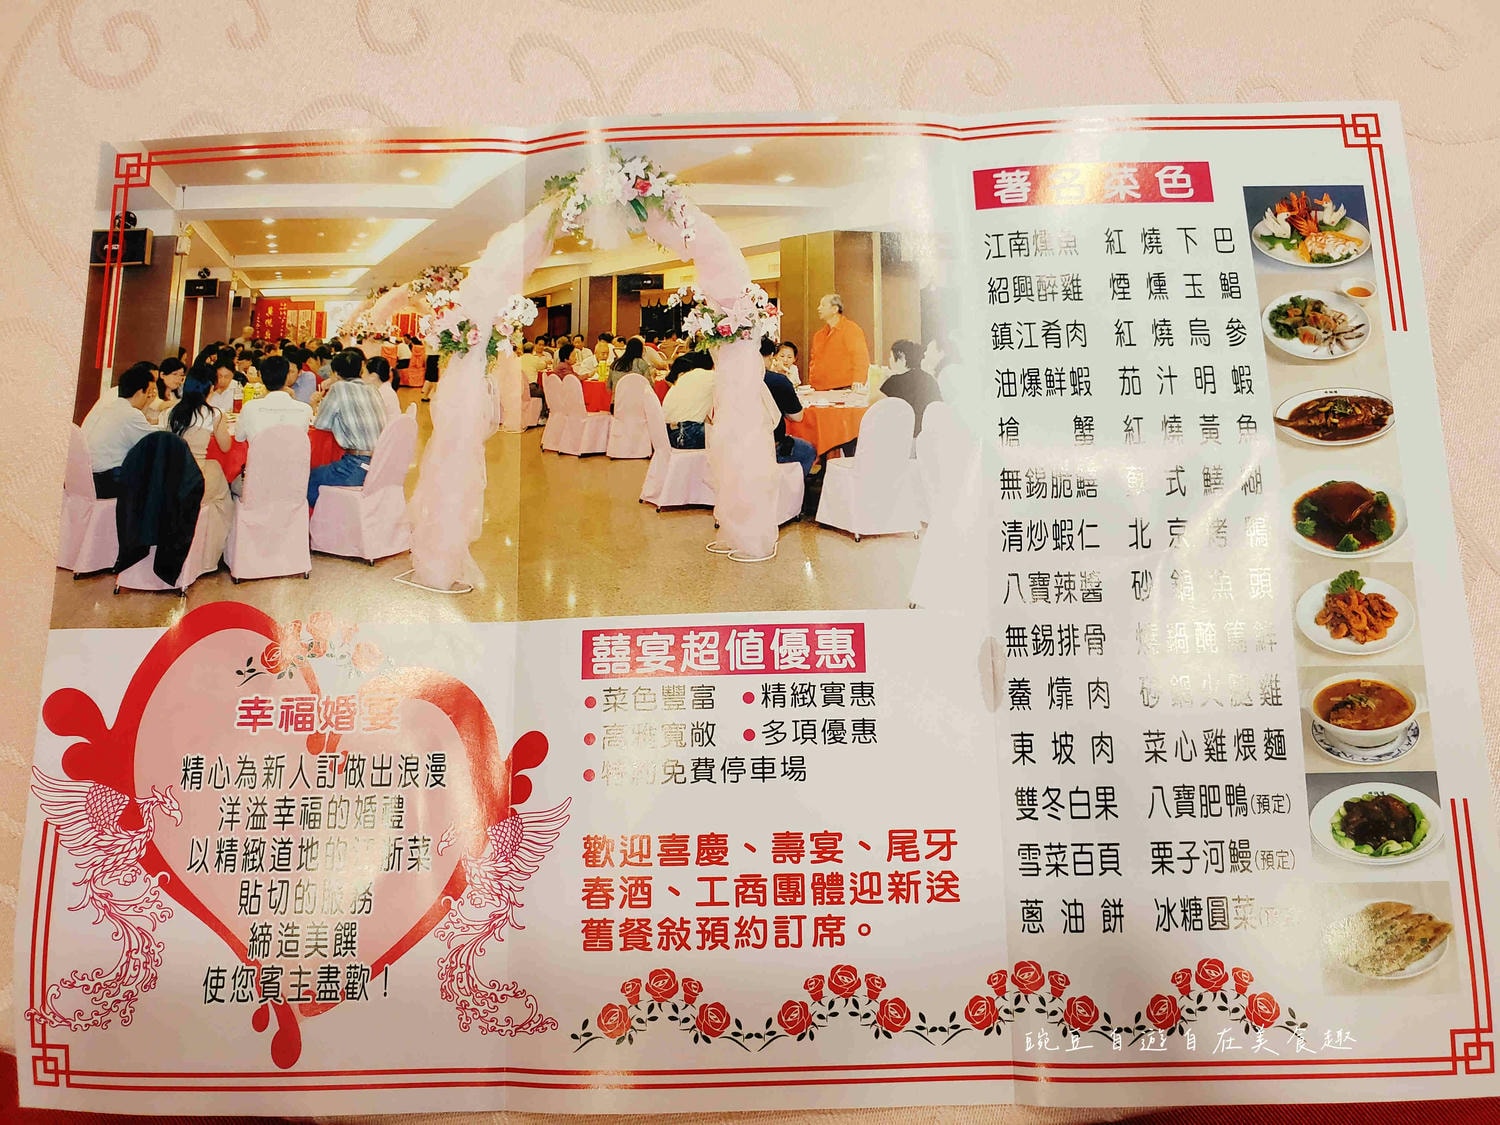 幸福婚宴
精心為新人訂做出浪漫
洋溢幸福的婚禮
以精緻道地的江浙菜
貼切的服務
締造美饌
使您賓主盡歡！
囍宴超值優惠
●菜色豐富 ●精緻實惠
●高雅寬敞 ●多項優惠
●特約免費停車場
歡迎喜慶、壽宴、尾牙
春酒、工商團體迎新送
舊餐敍預約訂席。
著名菜色
江南燻魚 紅燒下巴
紹興醉雞 煙燻玉鯧
鎮江肴肉 紅燒烏參
油爆鮮蝦 茄汁明蝦
搶蟹 紅燒黃魚
無錫脆鱔 式鱔糊
清炒蝦仁 北京烤鴨
八寶辣醬 砂鍋魚頭
無錫排骨 燒鍋醃篤鮮
羹㸆肉 砂鍋火腿雞
東坡肉 菜心雞煨麵
雙冬白果 八寶肥鴨(預定)
雪菜百頁 栗子河鰻(預定)
蔥油餅 冰糖圓菜
豌豆自遊自在美食趣